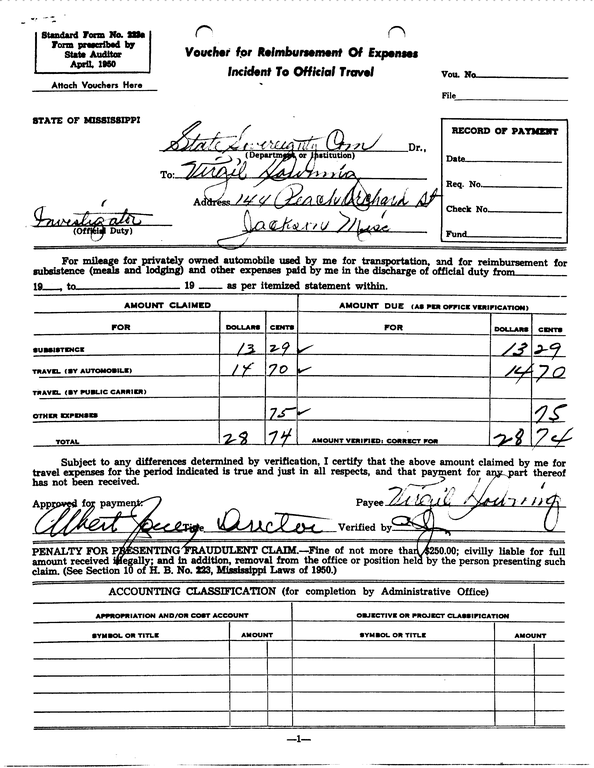 Standard Form No. 223a
Form prescribed by
State Auditor
April, 1950
Attach Vouchers Here
Voucher for Reimbursement Of Expenses
Incident To Official Travel
Vou. No.
File
STATE OF MISSISSIPPI
State Sovereignty Com Dr.,
(Department or Institution)
To: Virgil Downing
Address 144 Peach Orchard St
Jackson Miss
Investigator
(Official Duty)
RECORD OF PAYMENT
Date
Req. No.
Check No.
Fund
For mileage for privately owned automobile used by me for transportation, and for reimbursement for
subsistence (meals and lodging) and other expenses paid by me in the discharge of official duty from
19 , to 19 as per itemized statement within.
AMOUNT CLAIMED AMOUNT DUE (AS PER OFFICE VERIFICATION)
FOR DOLLARS CENTS FOR DOLLARS CENTS
SUBSISTENCE 13 29 ✓ 13 29
TRAVEL (BY AUTOMOBILE) 14 70 ✓ 14 70
TRAVEL (BY PUBLIC CARRIER)
OTHER EXPENSES 75 ✓ 75
TOTAL 28 74 AMOUNT VERIFIED: CORRECT FOR 28 74
Subject to any differences determined by verification, I certify that the above amount claimed by me for
travel expenses for the period indicated is true and just in all respects, and that payment for any part thereof
has not been received.
Approved for payment: Payee Virgil Downing
Albert Title Director Verified by
PENALTY FOR PRESENTING FRAUDULENT CLAIM.—Fine of not more than $250.00; civilly liable for full
amount received illegally; and in addition, removal from the office or position held by the person presenting such
claim. (See Section 10 of H. B. No. 223, Mississippi Laws of 1950.)
ACCOUNTING CLASSIFICATION (for completion by Administrative Office)
APPROPRIATION AND/OR COST ACCOUNT OBJECTIVE OR PROJECT CLASSIFICATION
SYMBOL OR TITLE AMOUNT SYMBOL OR TITLE AMOUNT
—1—